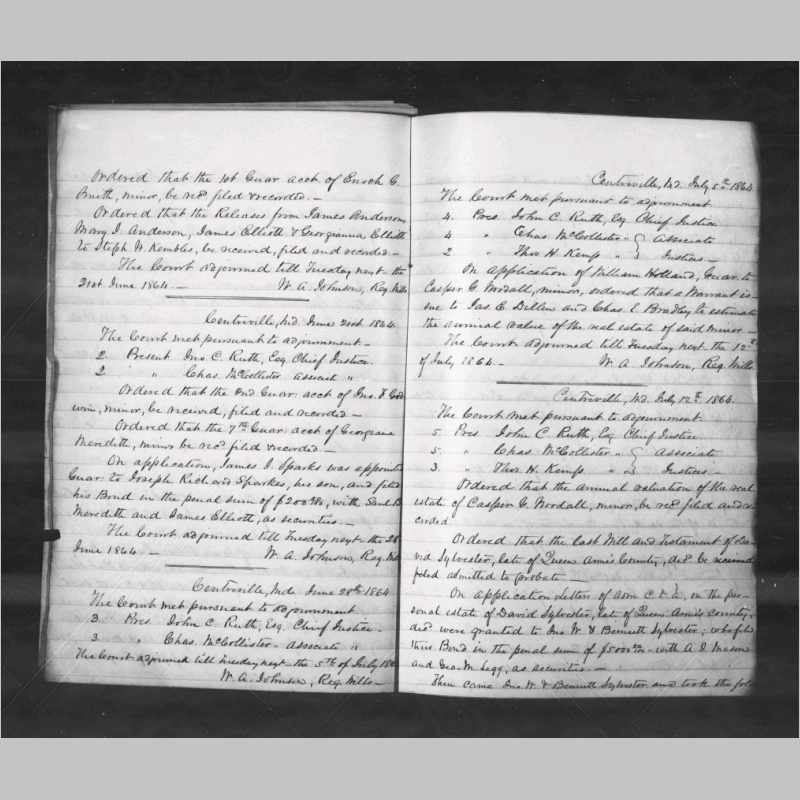 Ordered that the 1st Guar. acct of Enoch G.
Smith, minor, be recd filed & recorded. —
Ordered that the Releases from James Anderson,
Mary I. Anderson, James Elliott & Georgianna Elliott
to Steph W. Kembles, be received, filed and recorded —
The Court adjourned till Tuesday next the
21st June 1864. — W. A. Johnson, Reg. Wills
Centreville, Md. June 21st 1864.
The Court met pursuant to adjournment. —
2. Present Jno C. Ruth, Esq. Chief Justice.
2. " Chas. McCollister Associate "
Ordered that the 2nd Guar. acct of Jno. F. God
win, minor, be received, filed and recorded —
Ordered that the 7th Guar. acct of Georgeana
Meredith, minor be recd filed & recorded —
On application, James I. Sparks was appoint
Guar. to Joseph Richard Sparks, his son, and filed
his Bond in the penal sum of $200 with Saml
Meredith and James Elliott, as securities. —
The Court adjourned till Tuesday next the 28
June 1864. — W. A. Johnson, Reg. Wills
Centreville, Md. June 28th 1864
The Court met pursuant to adjournment
3. Pres. John C. Ruth, Esq. Chief Justice.
3 " Chas. McCollister. associate "
The Court adjourned till tuesday next the 5th of July 186
W. A. Johnson, Reg. Wills —
Centreville, Md. July 5th 1864
The Court met pursuant to adjournment
4. Pres. John C. Ruth, Esq Chief Justice
4 " Chas. McCollister " } Associate
2 " Thos H. Kemp " } Justices —
On application of William Holland, Guar. to
Casper G. Woodall, minor, ordered that a Warrant is-
sue to Jas. C. Dillen and Chas. E. Bradley to estimate
the annual value of the real estate of said minor —
The Court adjourned till Tuesday next the 12th
of July 1864. — W. A. Johnson, Reg. Wills
Centreville, Md. July 12th 1864.
The Court met pursuant to adjournment
5. Pres John C. Ruth, Esq Chief Justice
5. " Chas. McCollister " } Associate
3. " Thos. H. Kemp " } Justices —
Ordered that the annual valuation of the real
estate of Casper G. Woodall, minor, be recd filed and re
corded
Ordered that the last Will and Testament of Da-
vid Sylvester, late of Queen Anns County, decd be received
filed admitted to probate —
On application Letters of adm C. t. a, on the per-
sonal estate of David Sylvester, late of Queen Anns county,
decd were granted to Jno W. & Bennett Sylvester; who filed
their Bond in the penal sum of $5000 — with A. I. Mason
and Geo. M. Legg, as securities. —
Then came Jno W. & Bennett Sylvester and took the foll